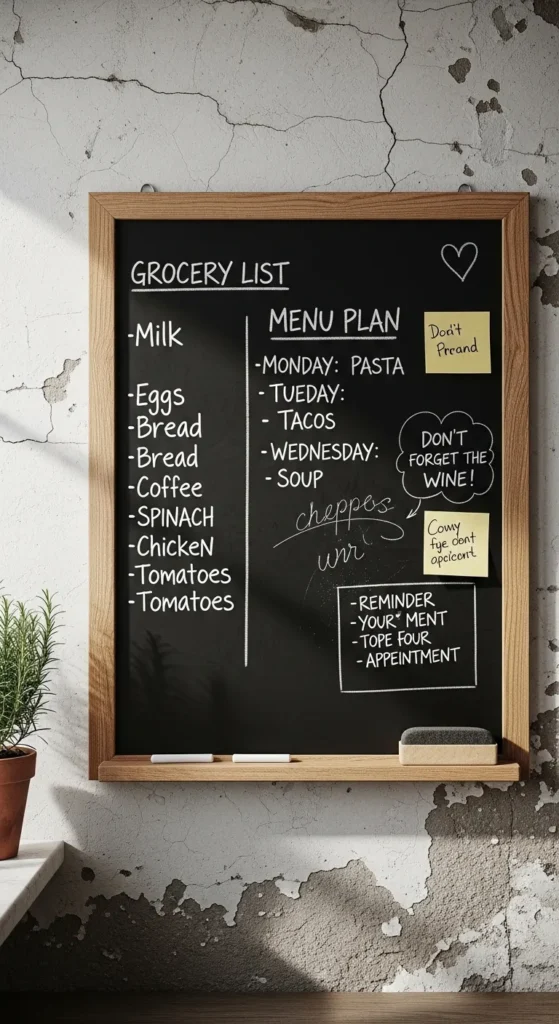 GROCERY LIST
-Milk
-Eggs
-Bread
-Bread
-Coffee
-SPINACH
-Chicken
-Tomatoes
-Tomatoes
MENU PLAN
-MONDAY: PASTA
-TUEDAY:
- TACOS
-WEDNESDAY:
- SOUP
cheppes
Don't
DON'T
FORGET THE
WINE!
-REMINDER
-YOUR* MENT
-TOPE FOUR
-APPEINTMENT